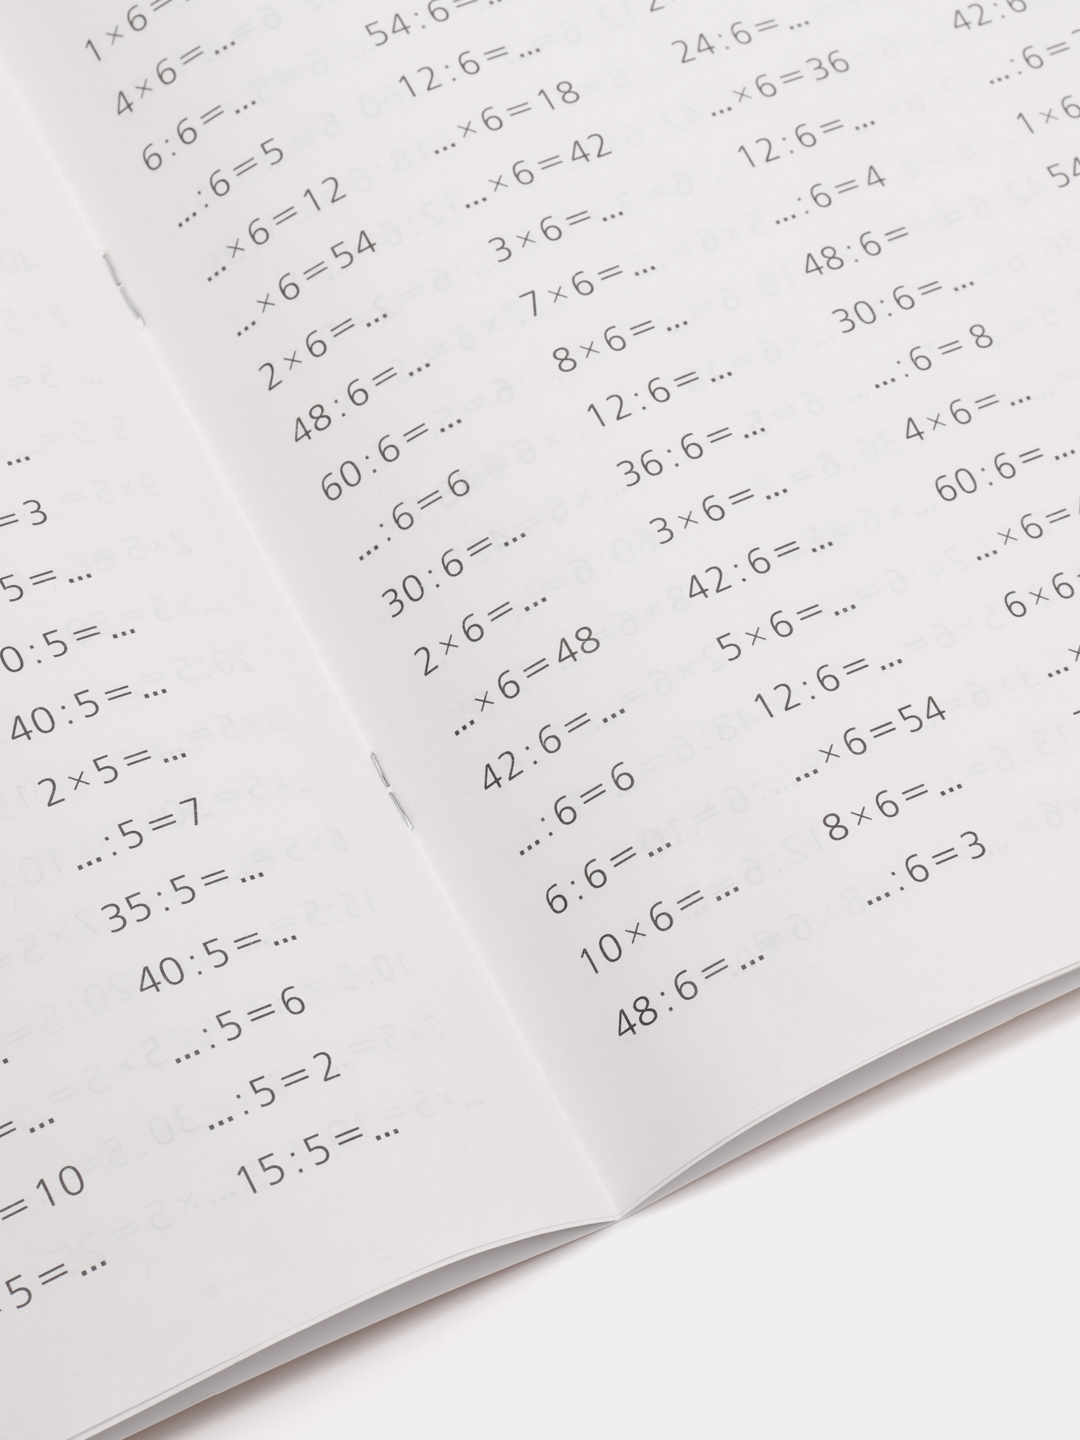 ...
=3
5=...
0:5=...
40:5=...
2×5=...
...:5=7
35:5=...
40:5=...
...:5=6
...:5=2
15:5=...
=...
=10
5=...
1×6=
4×6=...
6:6=...
...:6=5
...×6=12
...×6=54
2×6=...
48:6=...
60:6=...
...:6=6
30:6=...
2×6=...
...×6=48
42:6=...
...:6=6
6:6=...
10×6=...
48:6=...
54:6=...
12:6=...
...×6=18
...×6=42
3×6=...
7×6=...
8×6=...
12:6=...
36:6=...
3×6=...
42:6=...
5×6=...
12:6=...
...×6=54
8×6=...
...:6=3
24:6=...
...×6=36
12:6=...
...:6=4
48:6=
30:6=...
...:6=8
4×6=...
60:6=...
...×6=
6×6=
...×
42:6
...:6=
1×6
54